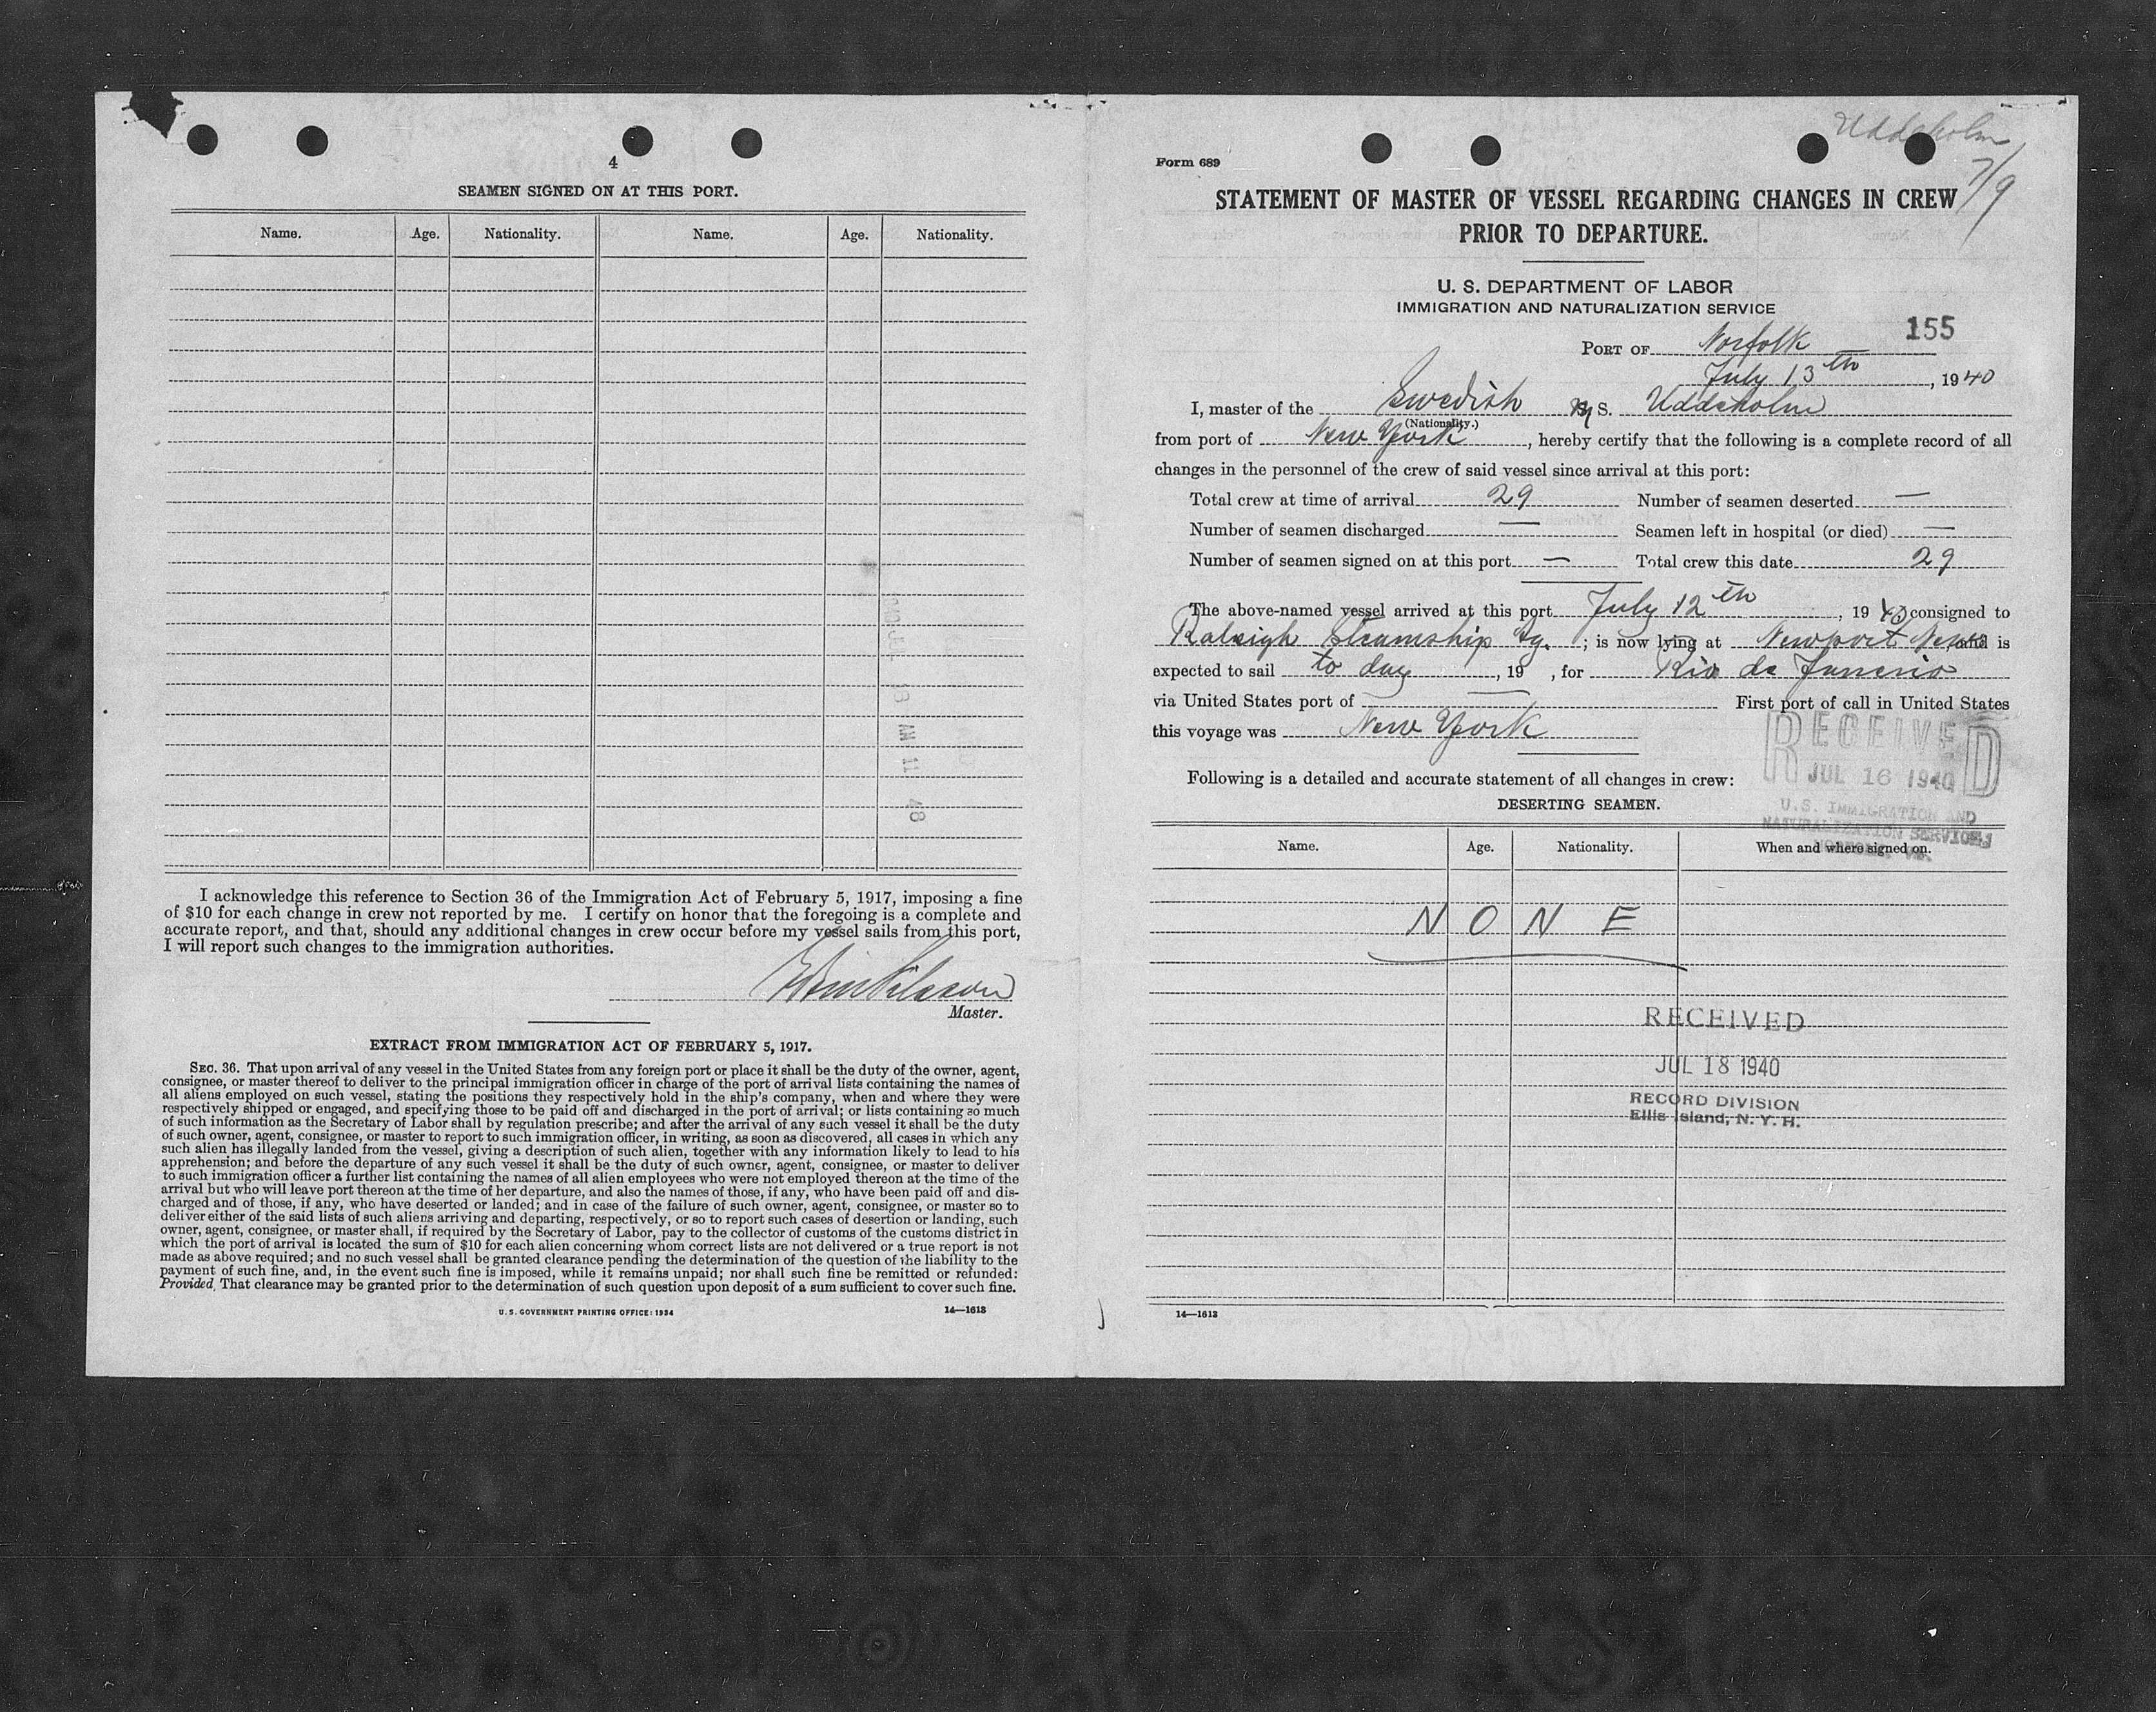 4
SEAMEN SIGNED ON AT THIS PORT.
Name. Age. Nationality. Name. Age. Nationality.
JUL 13 AM 11 48
I acknowledge this reference to Section 36 of the Immigration Act of February 5, 1917, imposing a fine
of $10 for each change in crew not reported by me. I certify on honor that the foregoing is a complete and
accurate report, and that, should any additional changes in crew occur before my vessel sails from this port,
I will report such changes to the immigration authorities.
Master.
EXTRACT FROM IMMIGRATION ACT OF FEBRUARY 5, 1917.
SEC. 36. That upon arrival of any vessel in the United States from any foreign port or place it shall be the duty of the owner, agent,
consignee, or master thereof to deliver to the principal immigration officer in charge of the port of arrival lists containing the names of
all aliens employed on such vessel, stating the positions they respectively hold in the ship's company, when and where they were
respectively shipped or engaged, and specifying those to be paid off and discharged in the port of arrival; or lists containing so much
of such information as the Secretary of Labor shall by regulation prescribe; and after the arrival of any such vessel it shall be the duty
of such owner, agent, consignee, or master to report to such immigration officer, in writing, as soon as discovered, all cases in which any
such alien has illegally landed from the vessel, giving a description of such alien, together with any information likely to lead to his
apprehension; and before the departure of any such vessel it shall be the duty of such owner, agent, consignee, or master to deliver
to such immigration officer a further list containing the names of all alien employees who were not employed thereon at the time of the
arrival but who will leave port thereon at the time of her departure, and also the names of those, if any, who have been paid off and dis-
charged and of those, if any, who have deserted or landed; and in case of the failure of such owner, agent, consignee, or master so to
deliver either of the said lists of such aliens arriving and departing, respectively, or so to report such cases of desertion or landing, such
owner, agent, consignee, or master shall, if required by the Secretary of Labor, pay to the collector of customs of the customs district in
which the port of arrival is located the sum of $10 for each alien concerning whom correct lists are not delivered or a true report is not
made as above required; and no such vessel shall be granted clearance pending the determination of the question of the liability to the
payment of such fine, and, in the event such fine is imposed, while it remains unpaid; nor shall such fine be remitted or refunded:
Provided, That clearance may be granted prior to the determination of such question upon deposit of a sum sufficient to cover such fine.
U. S. GOVERNMENT PRINTING OFFICE: 1934 14—1613
Uddeholm
7/9
Form 689
STATEMENT OF MASTER OF VESSEL REGARDING CHANGES IN CREW
PRIOR TO DEPARTURE.
U. S. DEPARTMENT OF LABOR
IMMIGRATION AND NATURALIZATION SERVICE
155
PORT OF Norfolk
July 13th, 1940
I, master of the Swedish M S. Uddeholm
(Nationality.)
from port of New York, hereby certify that the following is a complete record of all
changes in the personnel of the crew of said vessel since arrival at this port:
Total crew at time of arrival 29 Number of seamen deserted —
Number of seamen discharged — Seamen left in hospital (or died) —
Number of seamen signed on at this port — Total crew this date 29
The above-named vessel arrived at this port July 12th, 1940 consigned to
Raleigh Steamship Ag.; is now lying at Newport News and is
expected to sail to day, 19 , for Rio de Janeiro
via United States port of — First port of call in United States
this voyage was New York
RECEIVED
JUL 16 1940
U.S. IMMIGRATION AND
NATURALIZATION SERVICE
NORFOLK, VA.
Following is a detailed and accurate statement of all changes in crew:
DESERTING SEAMEN.
Name. Age. Nationality. When and where signed on.
N O N E
RECEIVED
JUL 18 1940
RECORD DIVISION
Ellis Island, N. Y. H.
14—1613